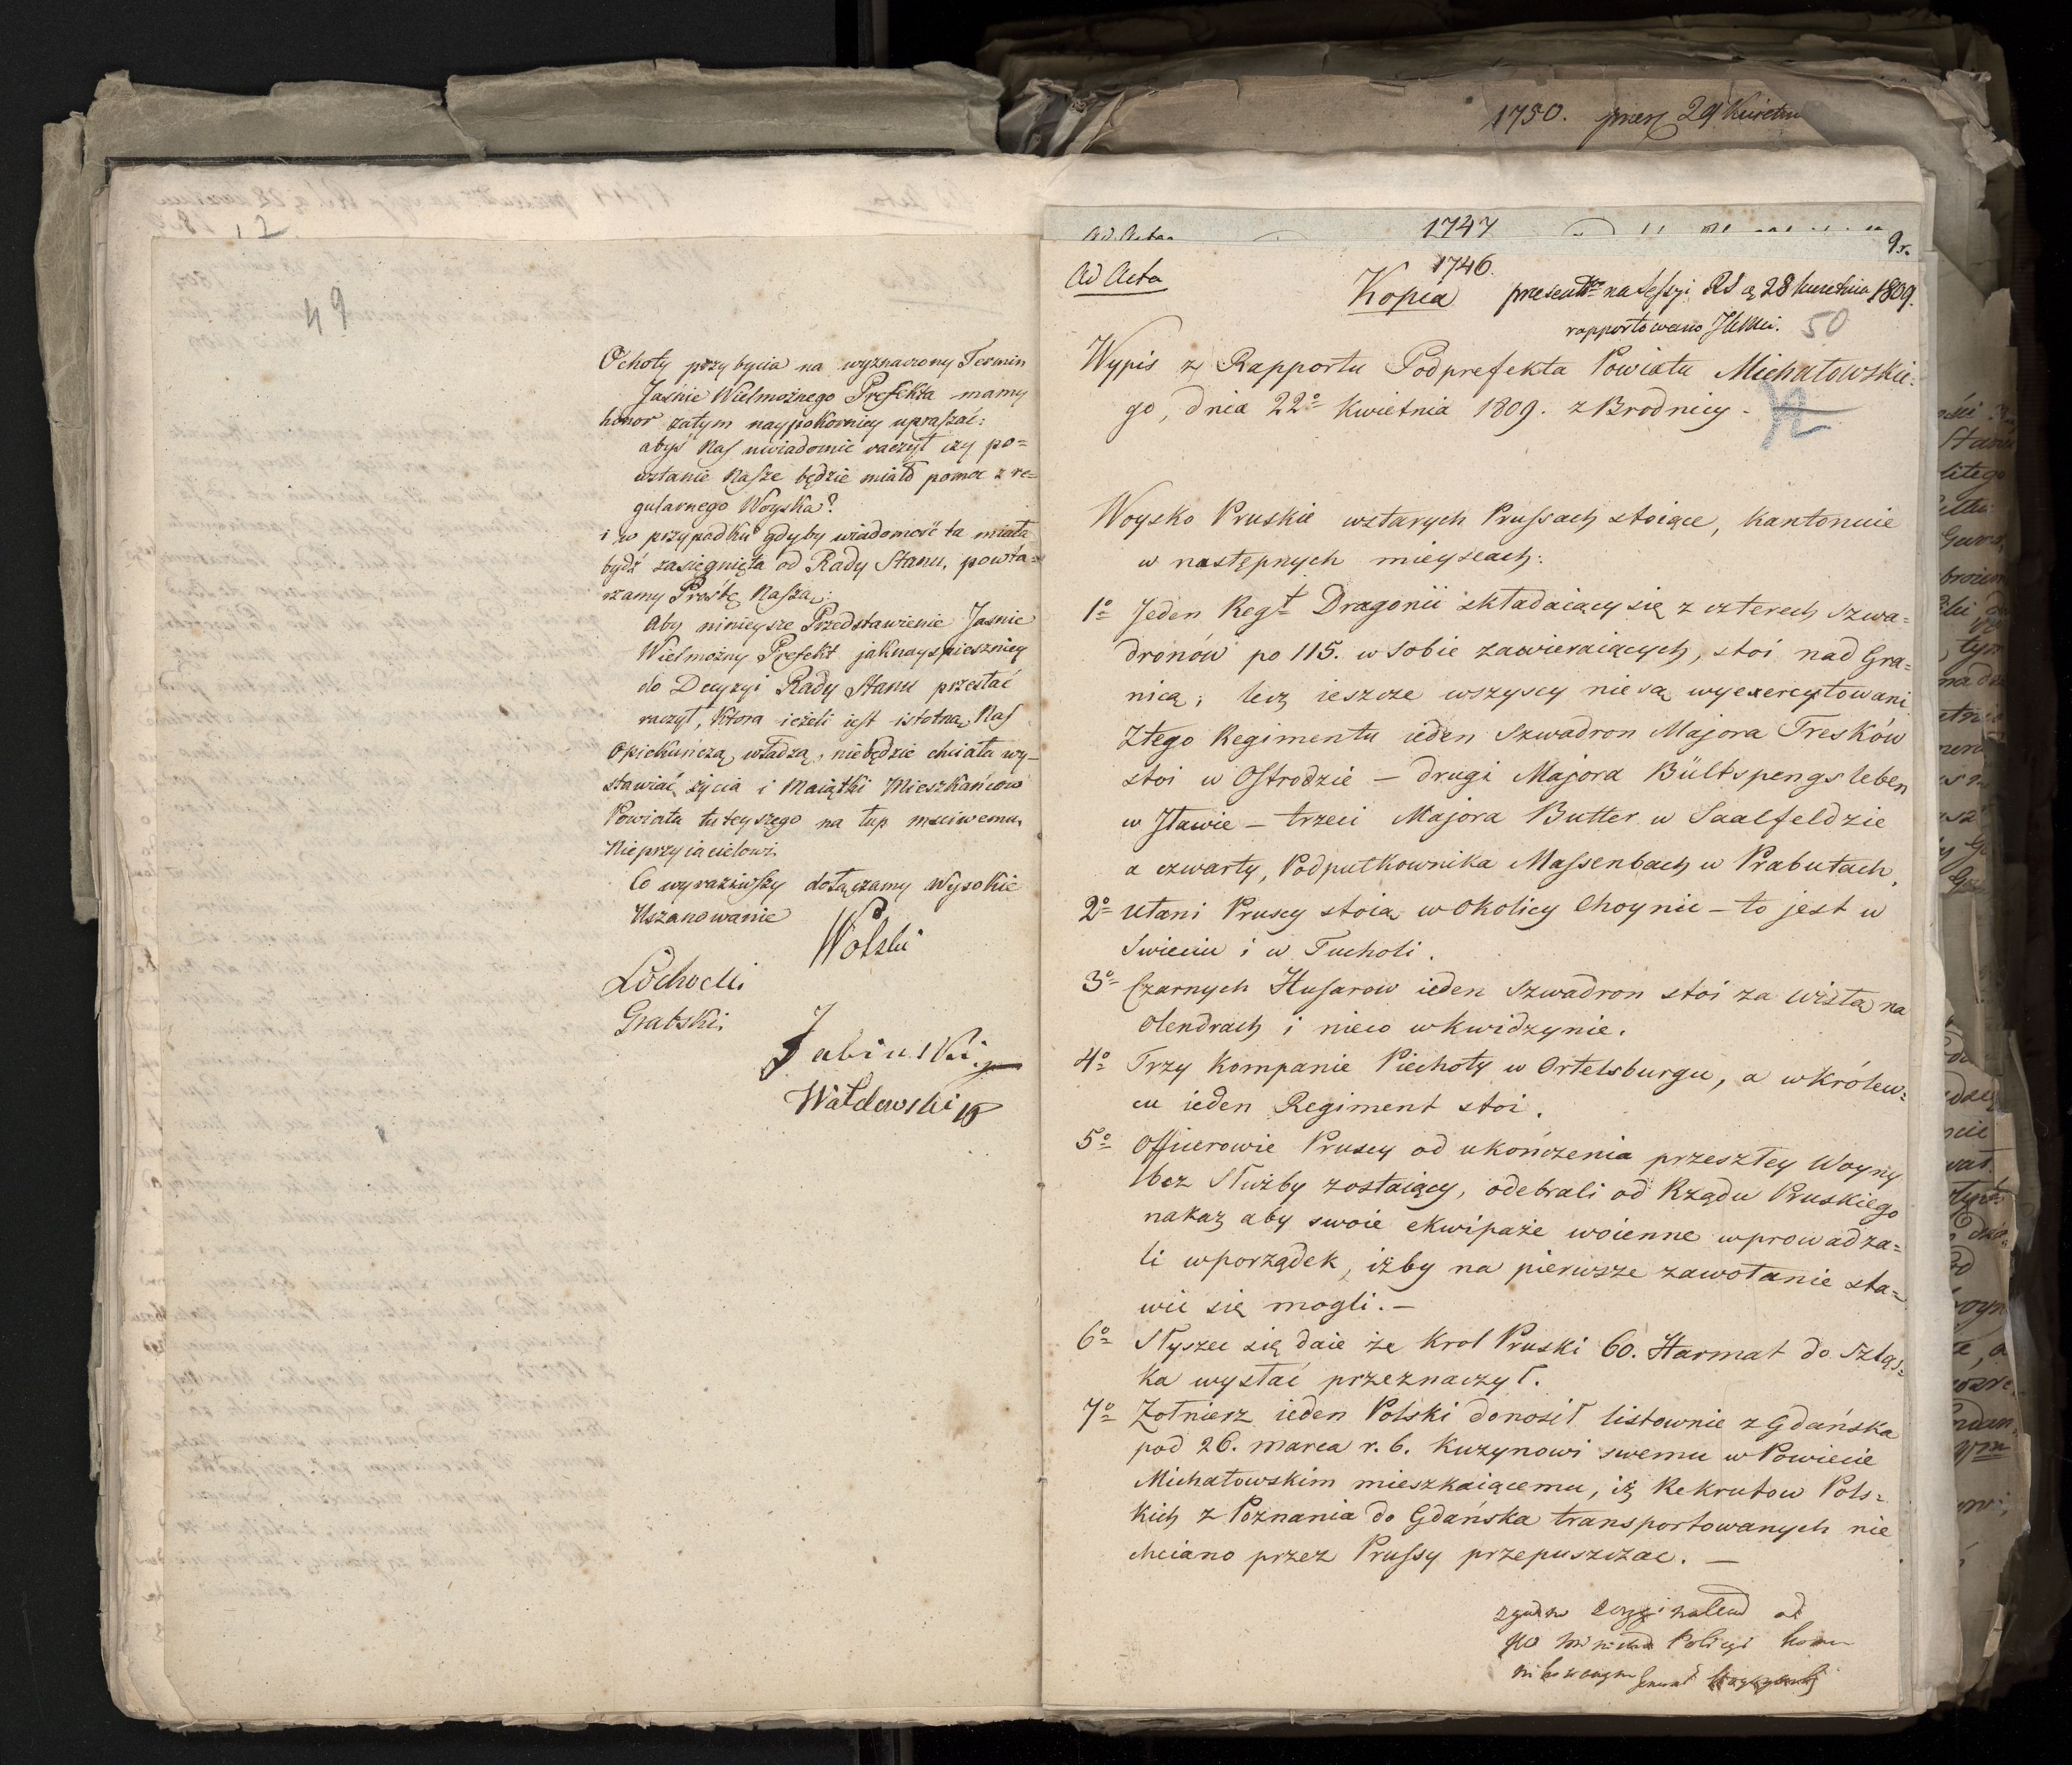 49
Ochoty przybycia na wyznaczony Termin
Jaśnie Wielmożnego Prefekta mamy
honor zatym naypokorniey upraszać:
abyś Nas uwiadomić raczył czy po=
wstanie Nasze będzie miało pomoc z re=
gularnego Woyska?
i w przypadku gdyby wiadomość ta miała
bydź zasięgnięta od Rady Stanu, powta=
rzamy Prośbę Naszą:
Aby ninieysze Przedstawienie Jaśnie
Wielmożny Prefekt jaknayspieszniey
do Decyzyi Rady Stanu przesłać
raczył, Ktora ieżeli iest istotną Nas
Opiekuńczą władzą, niebędzie chciała wy-
stawiać życia i Maiątki Mieszkańców
Powiatu tuteyszego na łup msciwemu
Nieprzyiacielowi
Co wyraziwszy dołączamy Wysokie
Uszanowanie
Wolski
Łochocki
Grabski
Jabiński
Wałdowski
1750. prez 29 Kwietnia
1747
Ad Acta
9r.
1746.
Ad Acta
Kopia
na Sessyi RS 28 kwietnia 1809.
rapportowano
50
Wypis z Rapportu Podprefekta Powiatu Michałowskie=
go, dnia 22º Kwietnia 1809. z Brodnicy -
Woysko Pruskie wstarych Prussach stoiące, kantonuie
w następnych mieyscach:
1º Jeden Regt Dragonii składaiący się z czterech szwa=
dronów po 115. w sobie zawieraiących, stoi nad Gra=
nicą; lecz ieszcze wszyscy nie są wyexercytowani
Ztego Regimentu ieden Szwadron Majora Tresków
stoi w Ostrodzie – drugi Majora Bültspengsleben
w Jławie – trzeci Majora Butter w Saalfeldzie
a czwarty, Podpułkownika Massenbach w Prabutach,
2º Ułani Pruscy stoią w okolicy Choynic – to jest w
Swieciu i w Tucholi.
3º Czarnych Husarow ieden Szwadron stoi za Wisłą na
Olendrach i nieco w kwidzynie.
4º Trzy Kompanie Piechoty w Ortelsburgu, a w Królew=
cu ieden Regiment stoi.
5º Officerowie Pruscy od ukończenia przeszłey Woyny
bez Służby zostaiący, odebrali od Rządu Pruskiego
nakaz aby swoie ekwipaże woienne wprowadza=
li wporządek, iżby na pierwsze zawołanie sta=
wic się mogli. –
6º Słyszec się daie że Krol Pruski 60. Harmat do Szląs=
ka wysłać przeznaczył.
7º Żołnierz ieden Polski donosił listownie z Gdańska
pod 26. marca r. b. Kuzynowi swemu w Powiecie
Michałowskim mieszkaiącemu, iż Rekrutow Pols=
kich z Poznania do Gdańska transportowanych nie
chciano przez Prussy przepuszczac. –
Policyi